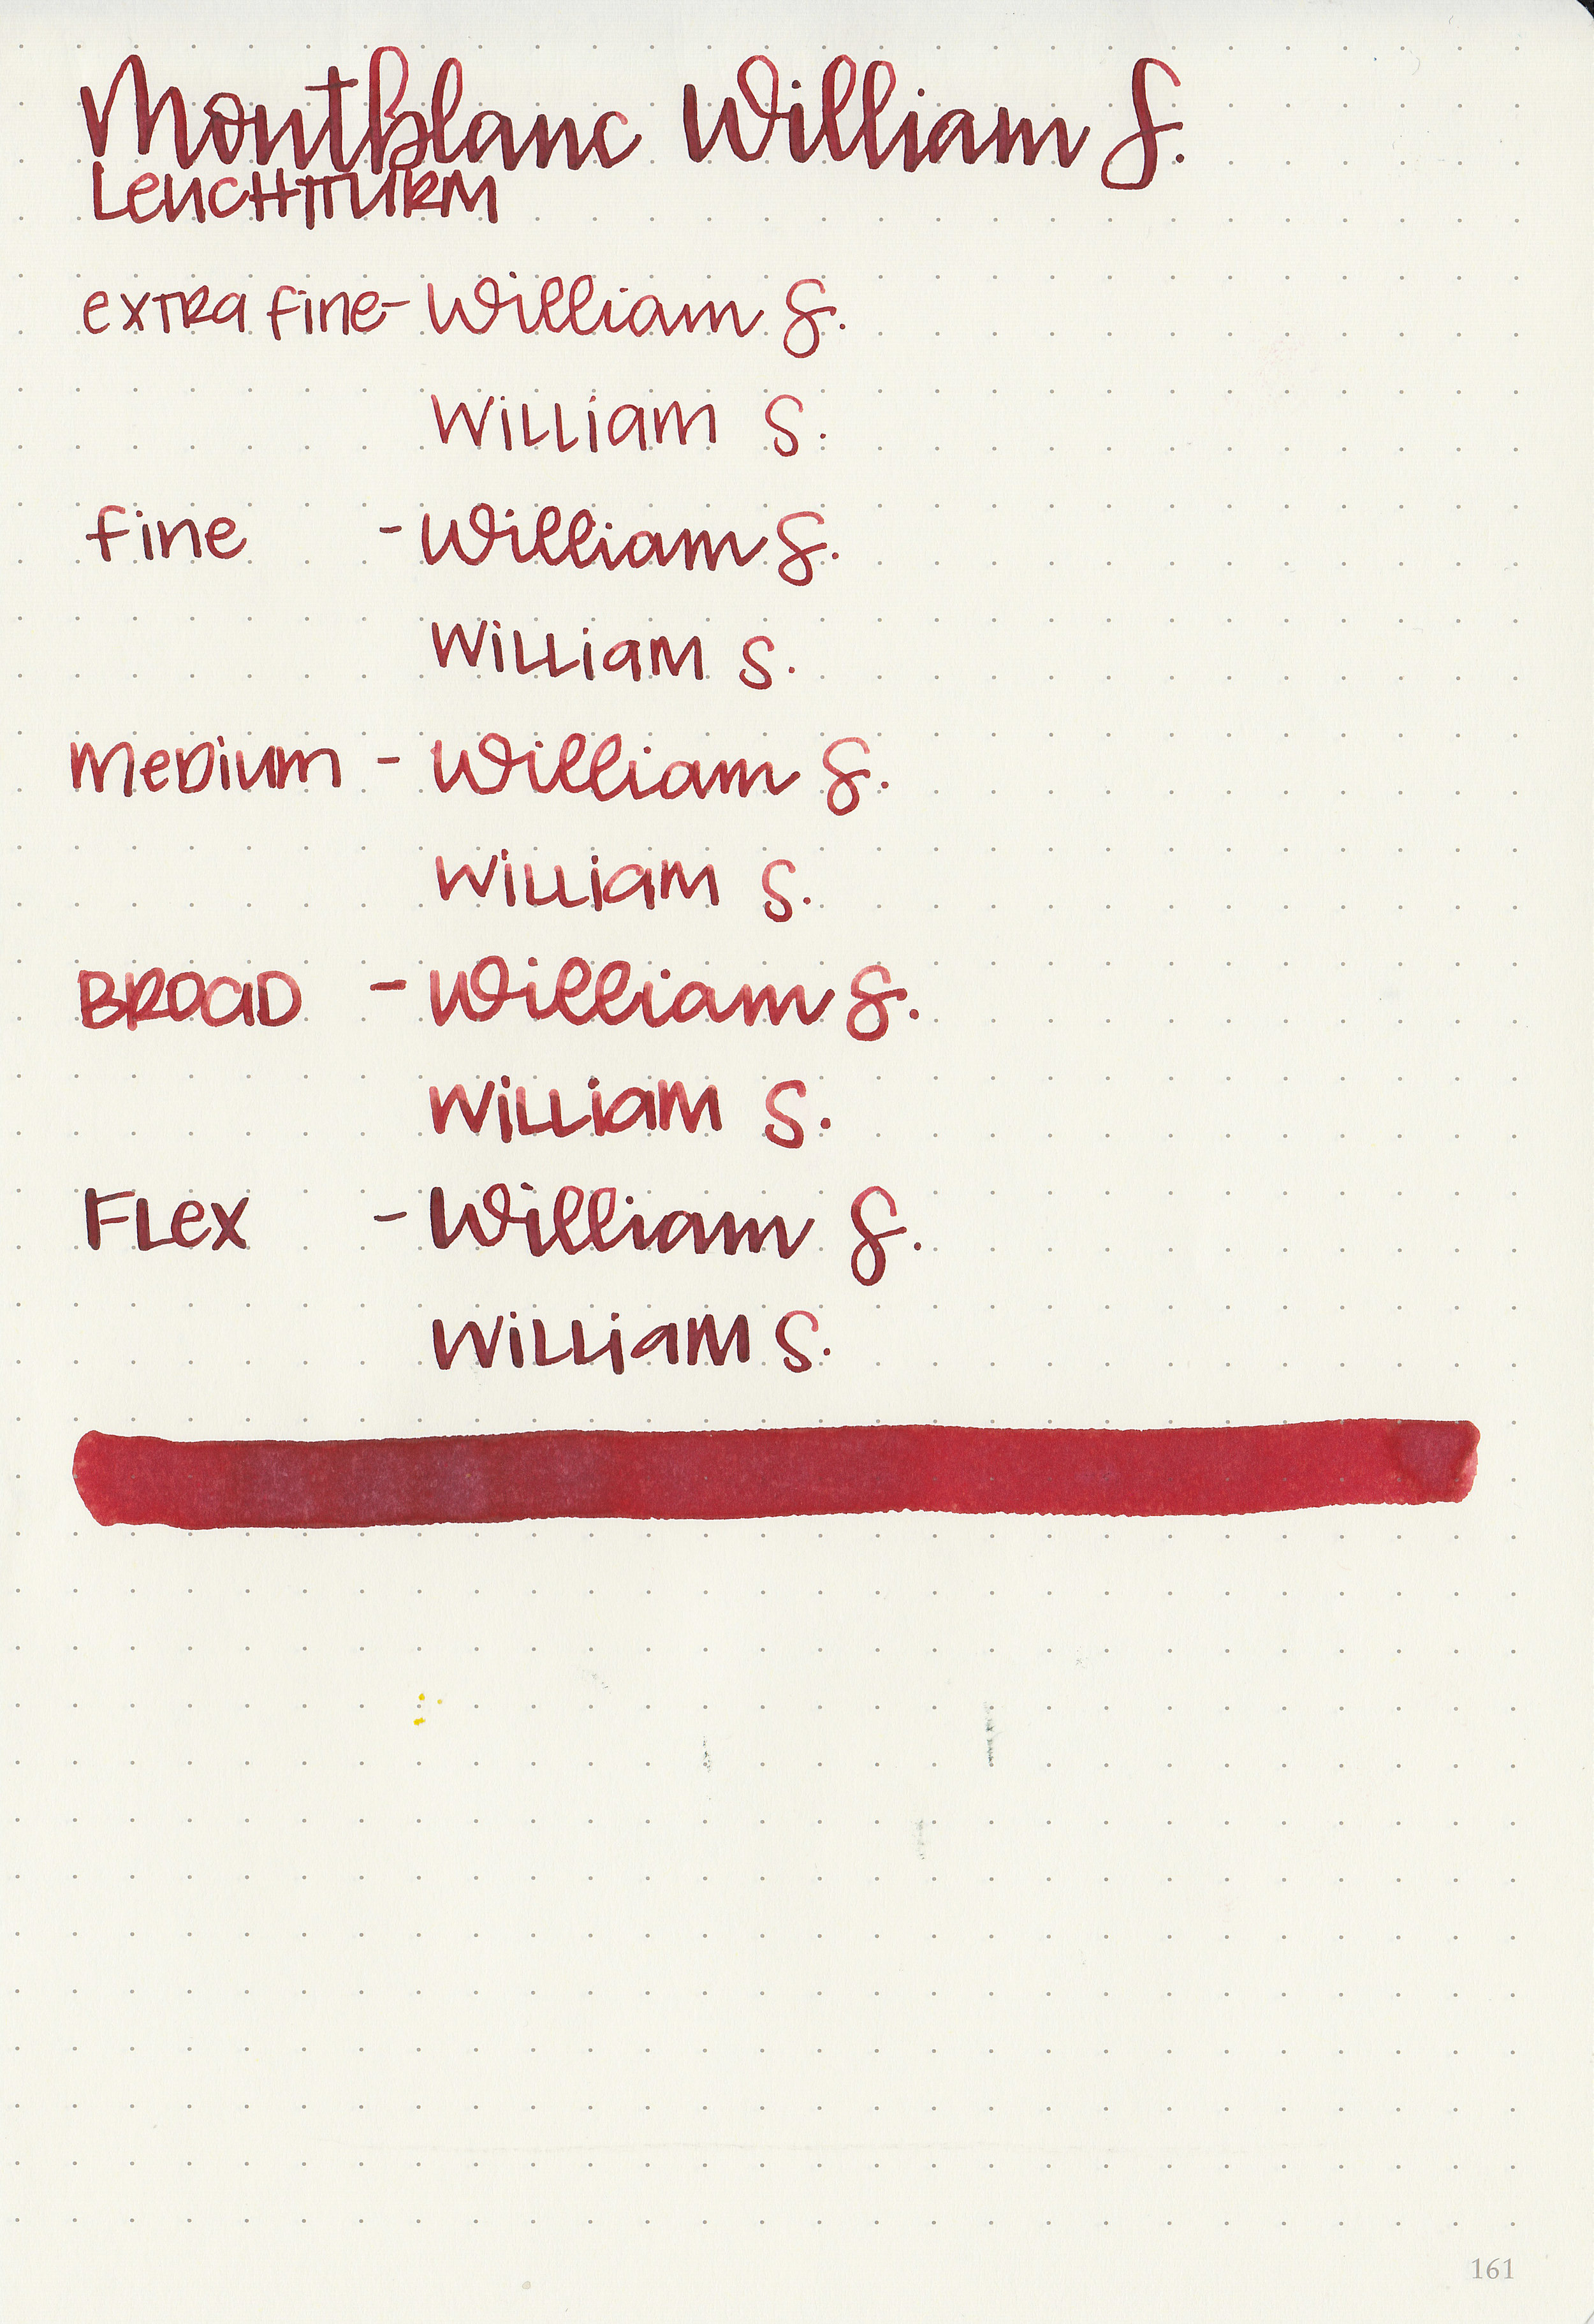 Montblanc William S.
Leuchtturm
extra fine - William S.
William S.
fine - William S.
William S.
Medium - William S.
William S.
BROAD - William S.
William S.
FLex - William S.
William S.
161